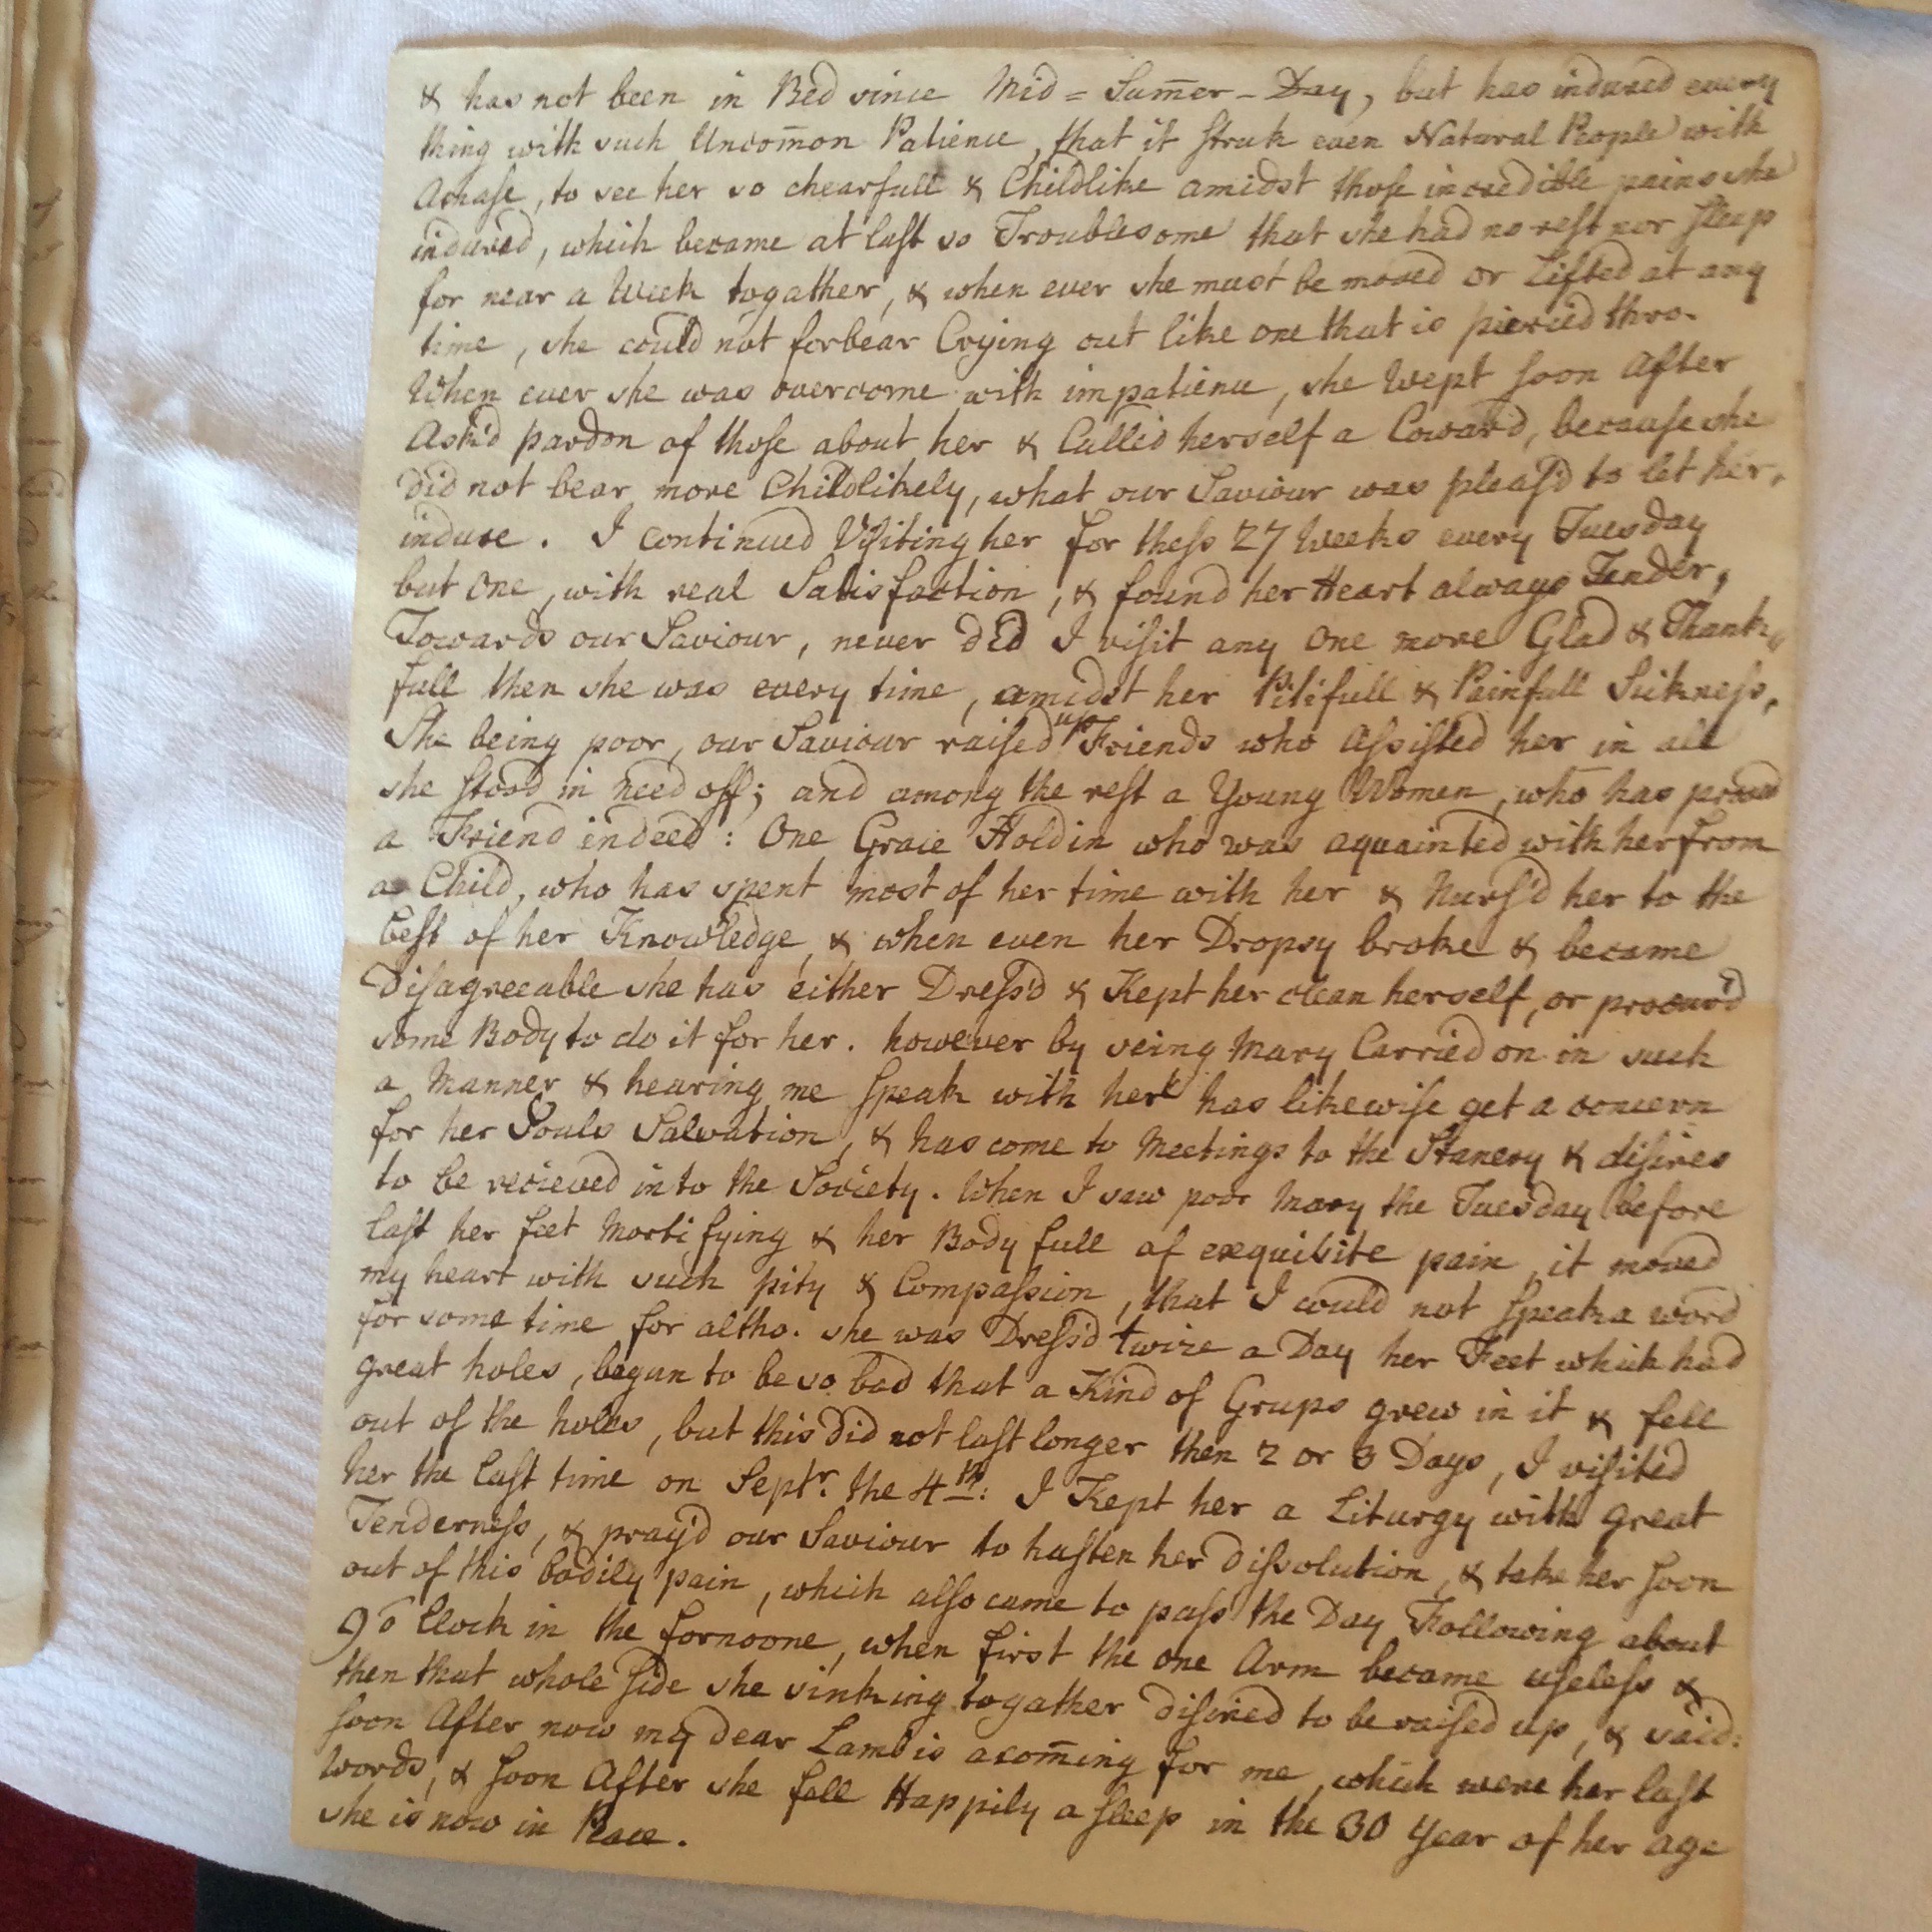 & has not been in Bed since Mid = Sum̄er - Day, but has indured every
thing with such Uncom̄on Patience, that it struk even Natural People with
Amase, to see her so chearfull & Childlike amidst those incredible pains she
indured, which became at last so Troublesome that she had no rest nor sleep
for near a Week togather, & when ever she must be moved or Lifted at any
time, she could not forbear Crying out like one that is pierced thro.
When ever she was overcome with impatience, she Wept soon After
Ask'd pardon of those about her & Called herself a Coward, because she
did not bear more Childlikely, what our Saviour was pleas'd to let her,
indure. I continued Visiting her for thess 27 Weeks every Tuesday
but One, with real Satisfaction, & found her Heart always Tender,
Towards our Saviour, never did I visit any One more Glad & Thank„
full then she was every time, amidst her Pitifull & Painfull Sickness,
She being poor, our Saviour raised up Friends who Assisted her in all
she stood in need off; and among the rest a Young Women, who has proved
a Friend indeed: One Grace Holdin who was aquainted with her from
a Child, who has spent most of her time with her & Nurs'd her to the
best of her Knowledge, & when even her Dropsy broke & became
Disagreeable she has either Dress'd & Kept her clean herself, or procur'd
some Body to do it for her. however by seing Mary Carried on in such
a Manner & hearing me speak with her has likewise get a concern
for her Souls Salvation, & has come to Meetings to the Stanery & disires
to be recieved into the Society. When I saw poor Mary the Tuesday before
last her feet Mortifying & her Body full of exquisite pain, it moved
my heart with such pity & Compassion, that I could not speak a word
for some time for altho. she was Dress'd twice a Day her Feet which had
great holes, began to be so bad that a Kind of Grups grew in it & fell
out of the holes, but this did not last longer then 2 or 3 Days, I visited
her the last time on Septr. the 4th: I Kept her a Liturgy with great
Tenderness, & pray'd our Saviour to hasten her dissolution, & take her soon
out of this bodily pain, which allso came to pass the Day Following about
9 o Clock in the fornoone, when first the one Arm became useless &
then that whole side she sinking togather disired to be raised up, & said:
soon After now my dear Lamb is acom̄ing for me, which were her last
Words, & soon After she fell Happily a sleep in the 30 Year of her age
she is now in Peace.